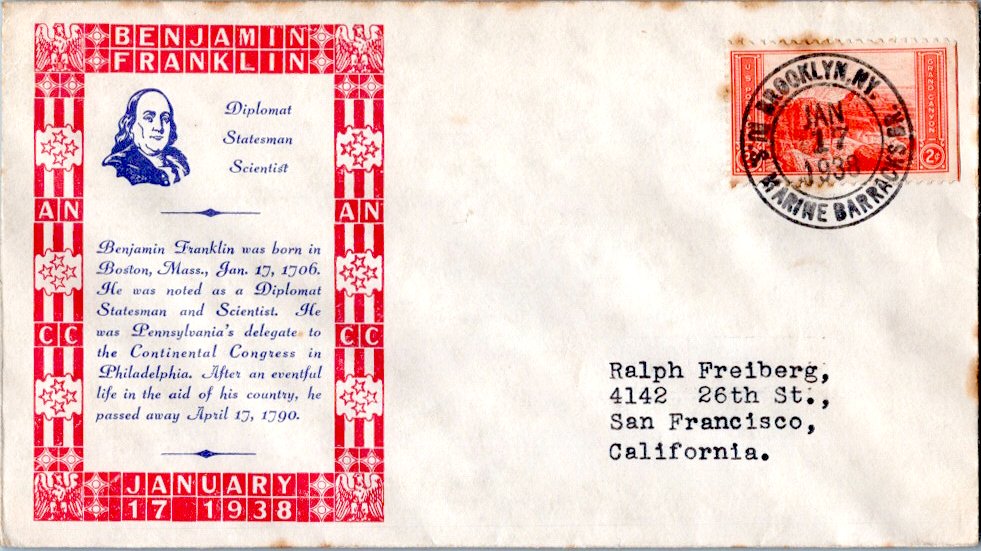 BENJAMIN
FRANKLIN
Diplomat
Statesman
Scientist
AN AN
Benjamin Franklin was born in
Boston, Mass., Jan. 17, 1706.
He was noted as a Diplomat
Statesman and Scientist. He
was Pennsylvania's delegate to
the Continental Congress in
Philadelphia. After an eventful
life in the aid of his country, he
passed away April 17, 1790.
CC CC
JANUARY
17 1938
U.S. PO
GRAND CANYON
2¢
BROOKLYN, N.Y.
JAN
17
1938
U.S.
MARINE BARRACKS BR.
Ralph Freiberg,
4142 26th St.,
San Francisco,
California.